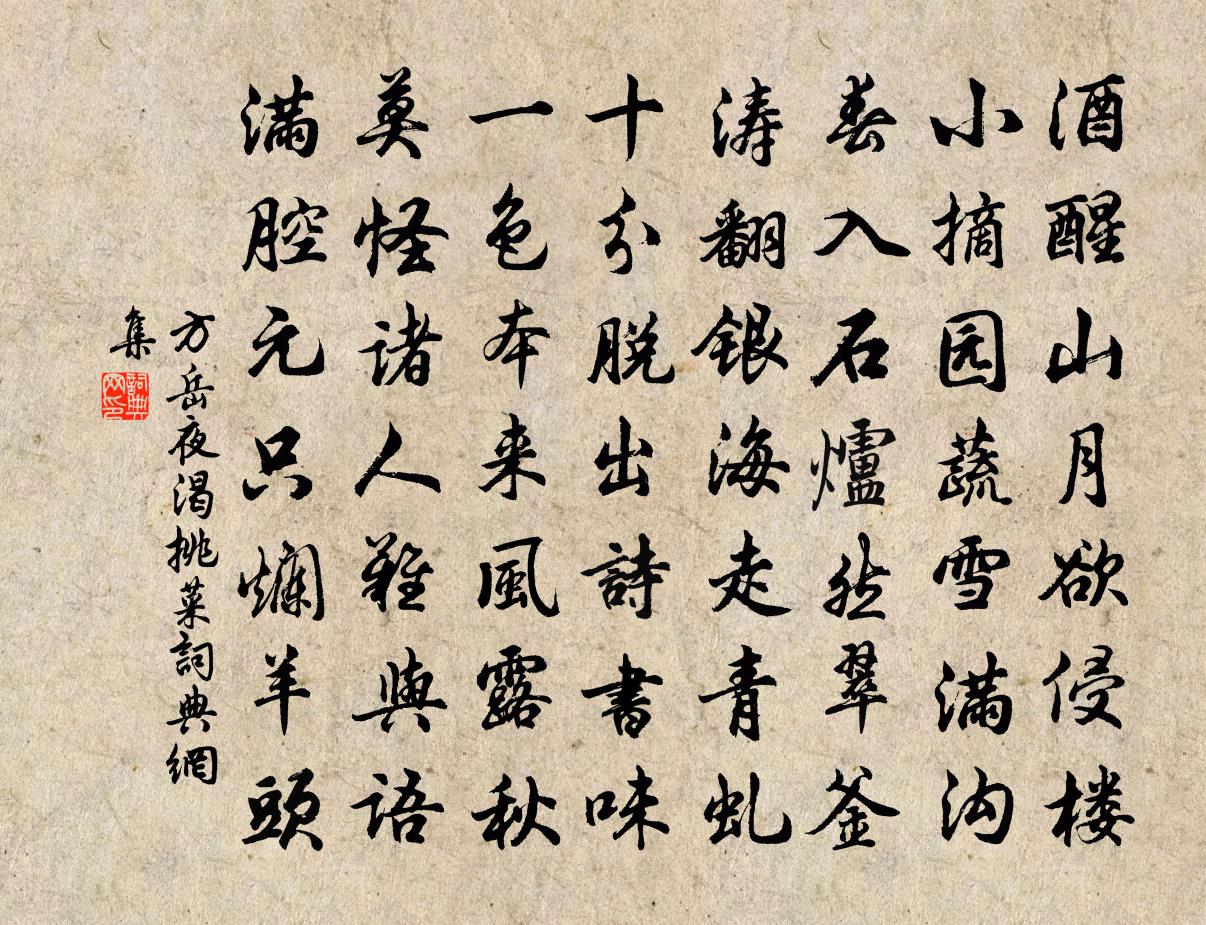 酒醒山月欲侵楼
小摘园蔬雪满沟
春入石爐然翠釜
涛翻银海走青虬
十分脱出詩書味
一色本来風露秋
莫怪诸人難與語
满腔元只爛羊頭
方岳夜渴挑菜詞典網
集
詞典
网印